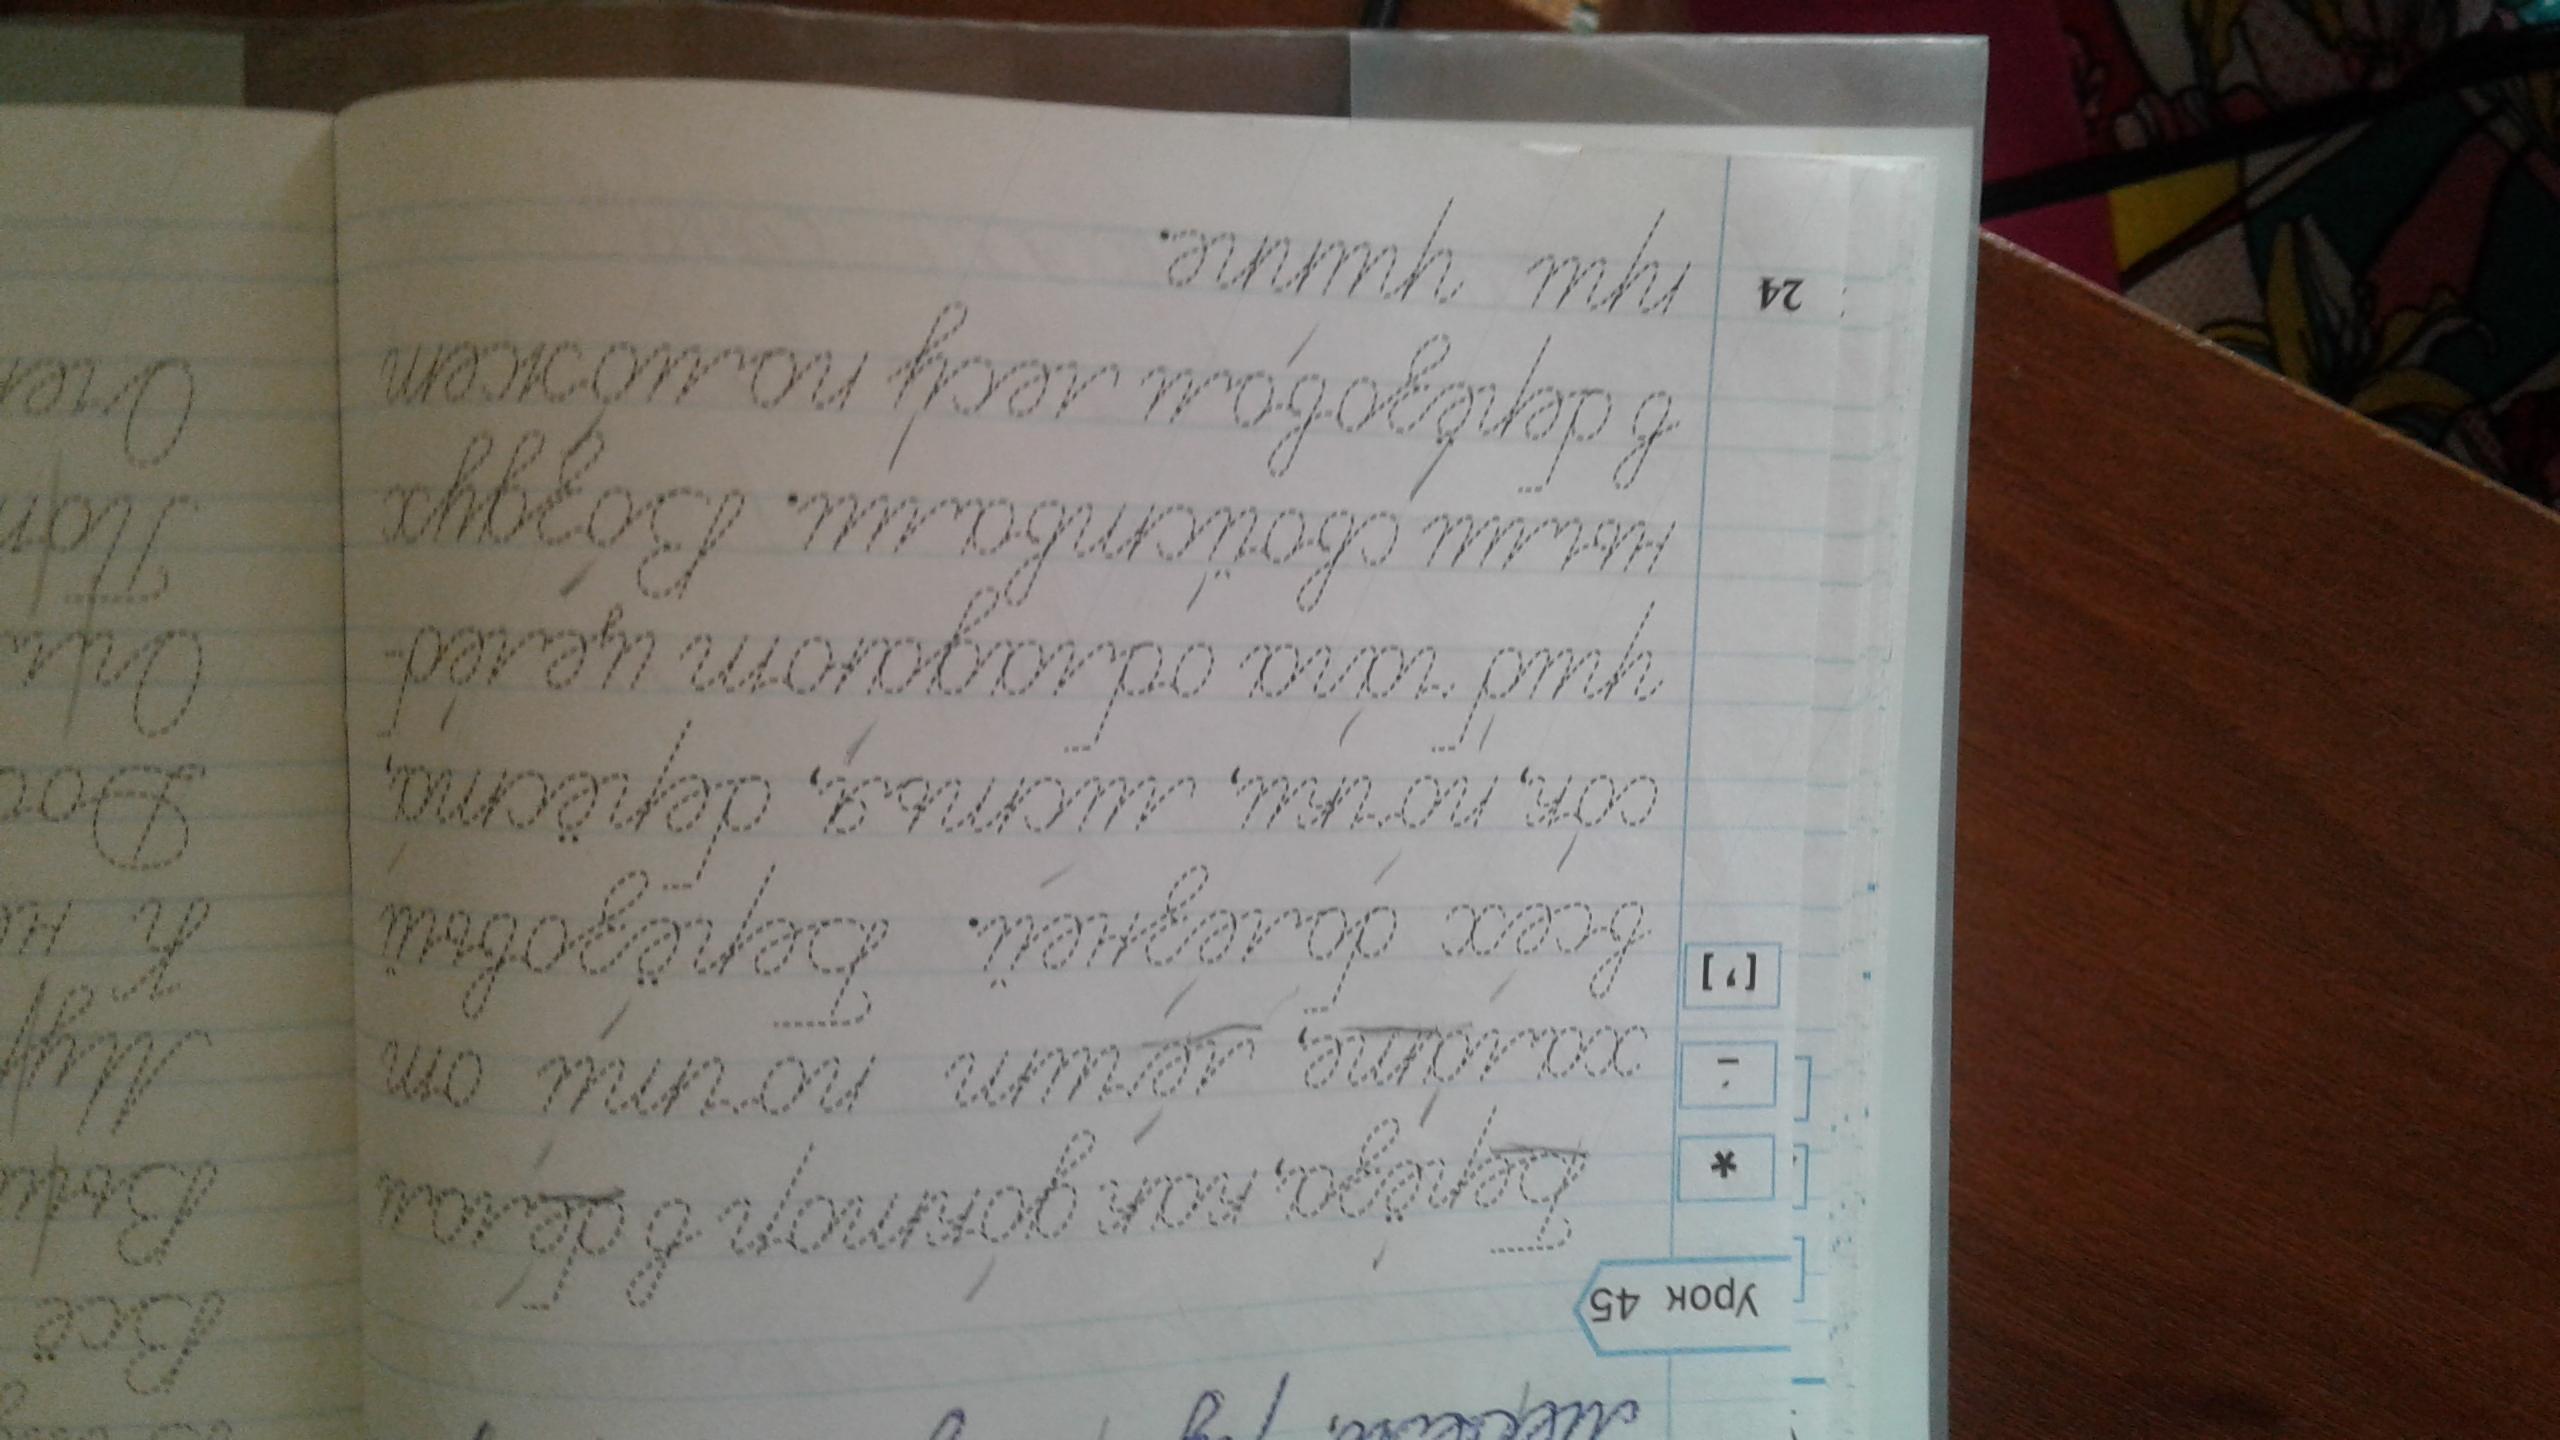 Урок 45
*
Берёза, как доктор в белом
халате, лечит почти от
[’]
всех болезней. Берёзовый
сок, почки, листья, берёста,
гриб чага обладают целеб-
ными свойствами. Воздух
в берёзовом лесу поможет
при гриппе.
24